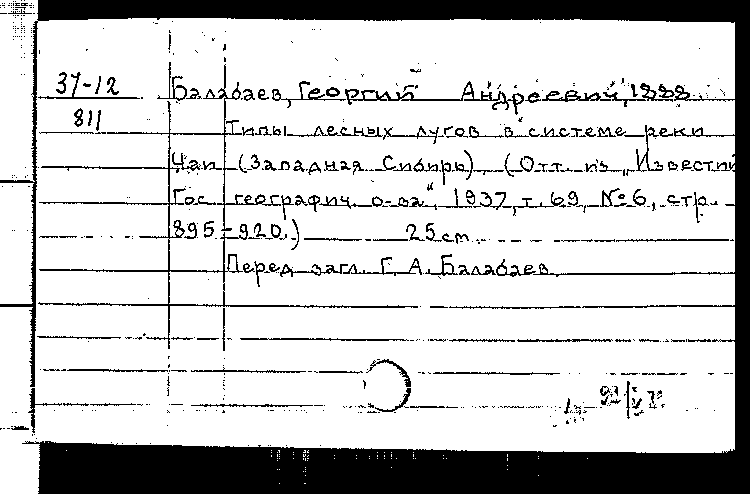 37-12
811
Балабаев, Георгий Андреевич, 1888
Типы лесных лугов в системе реки
Чап (Западная Сибирь), (Отт. из „Известий
Гос. географич. о-ва“, 1937, т. 69, №6, стр.
895-920.) 25 cm.
Перед загл. Г. А. Балабаев.